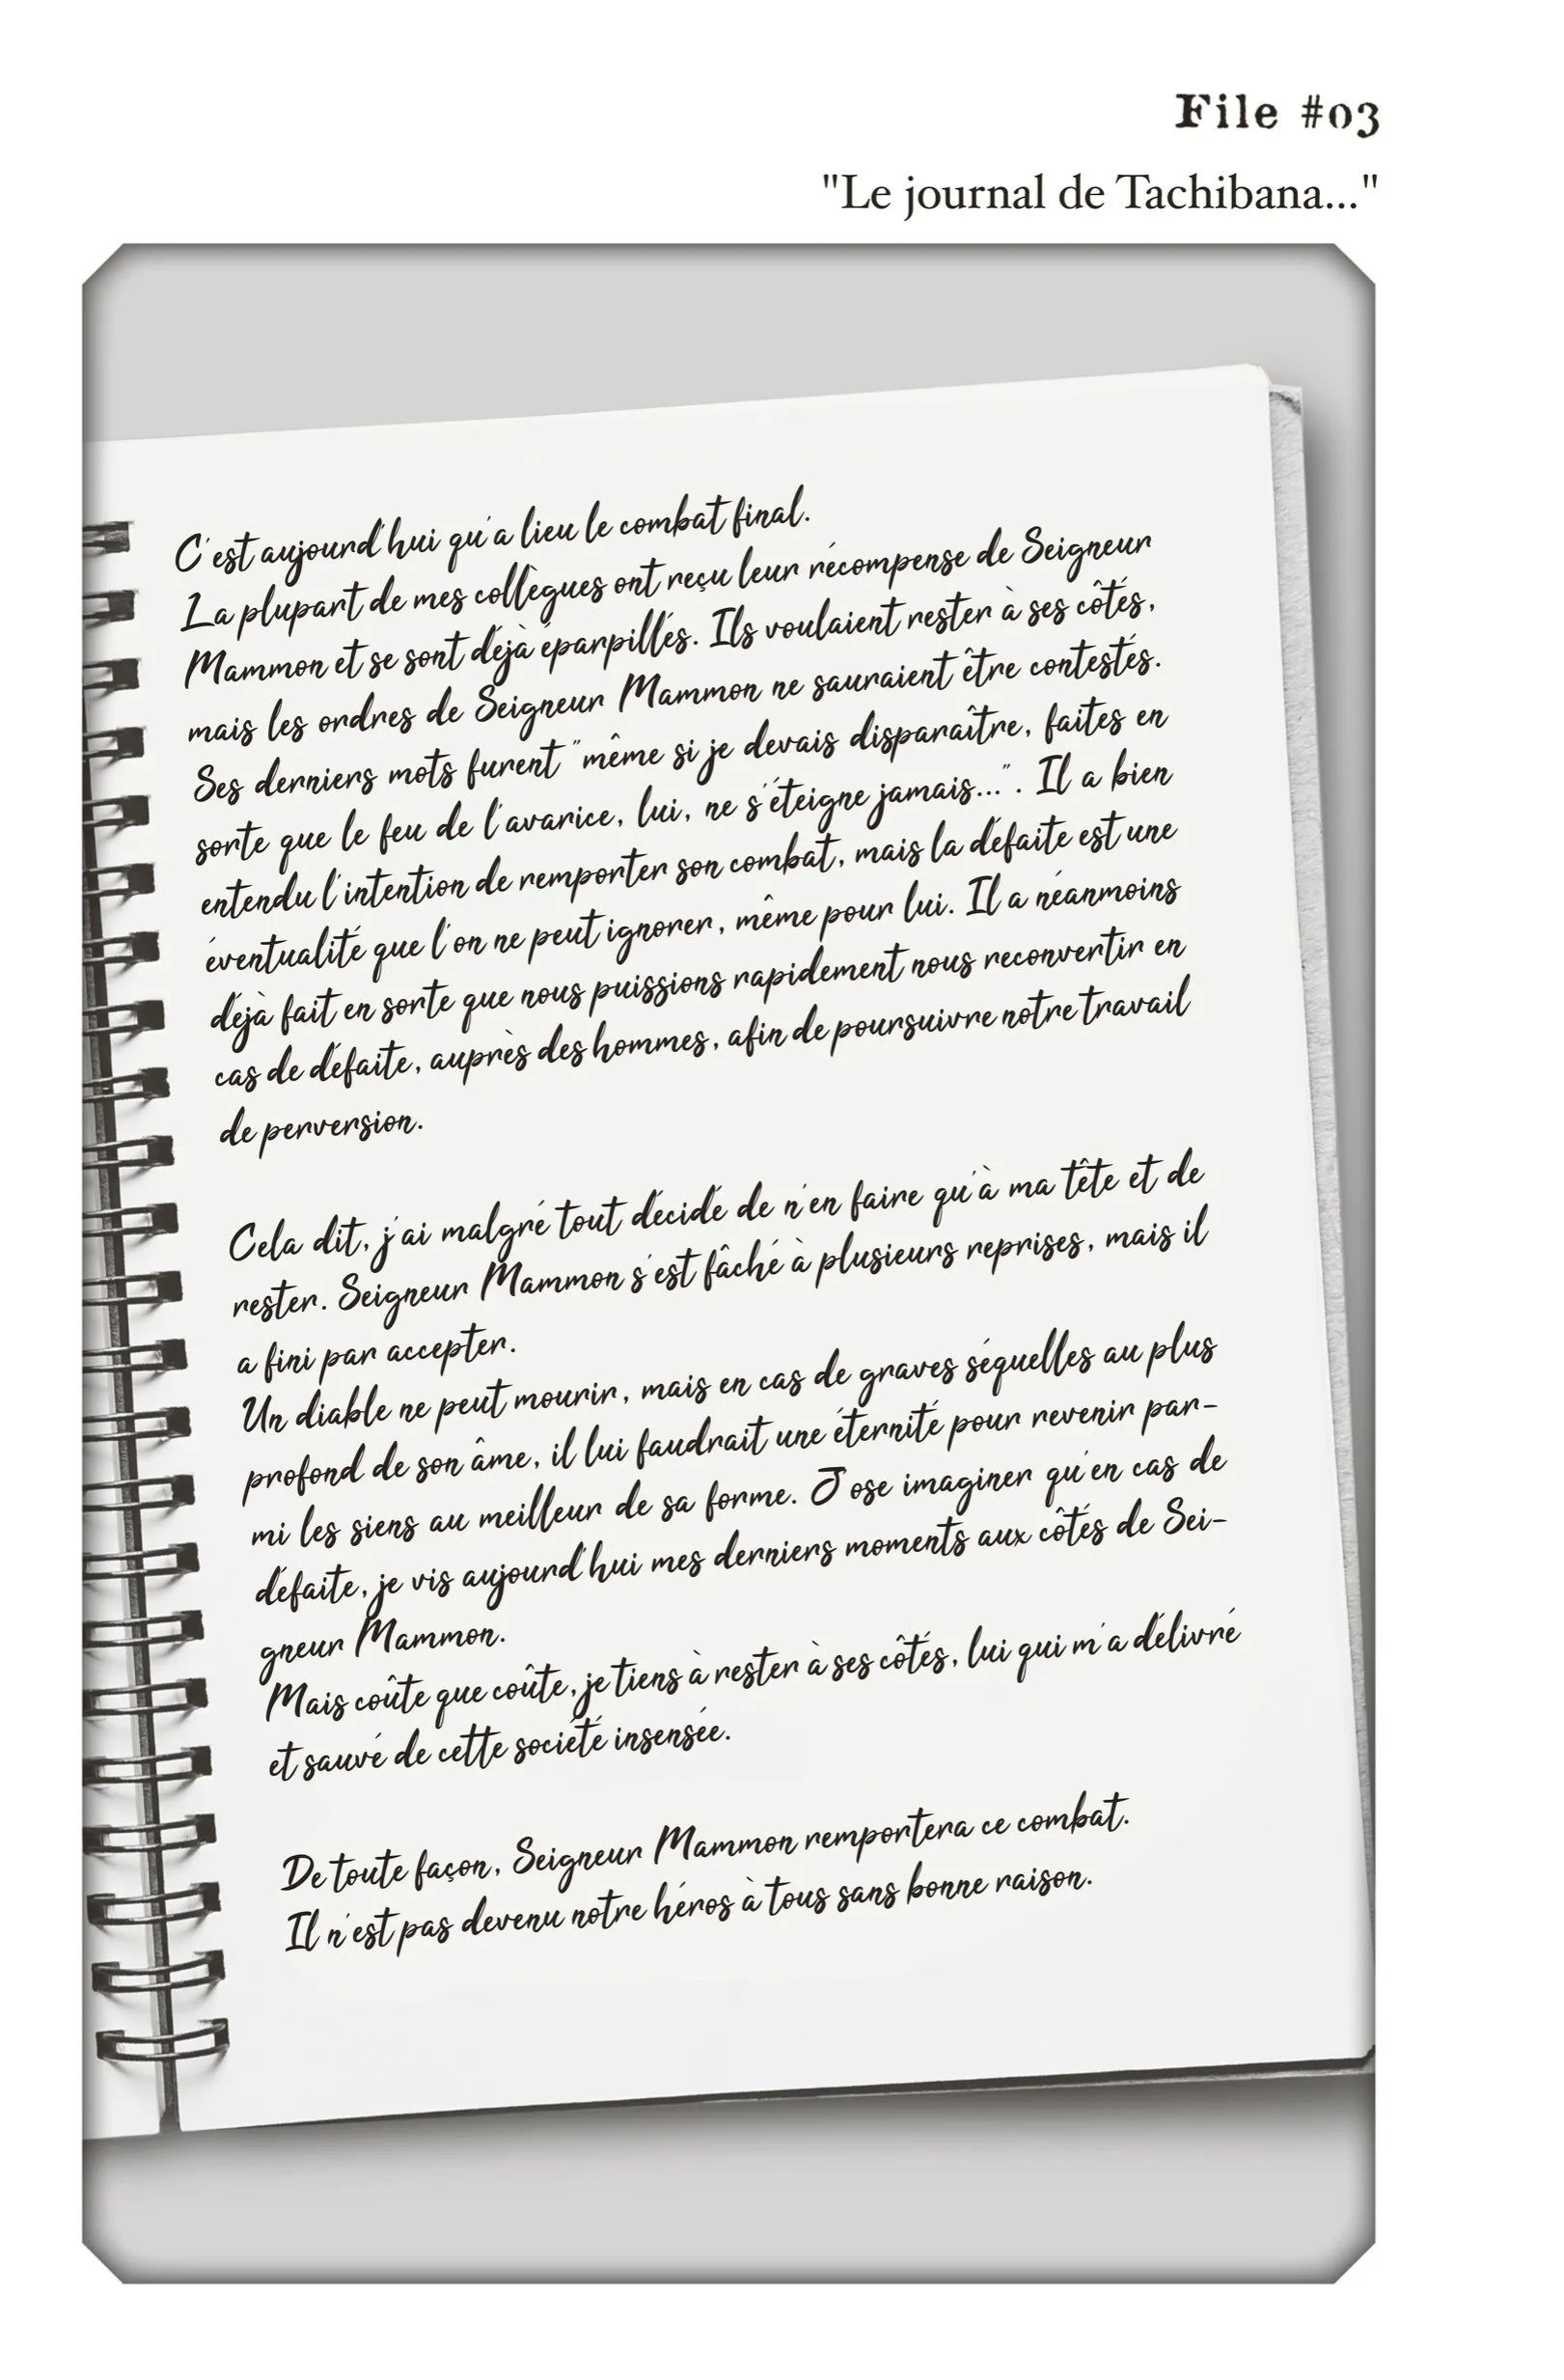 File #03
"Le journal de Tachibana..."
C'est aujourd'hui qu'a lieu le combat final.
La plupart de mes collègues ont reçu leur récompense de Seigneur
Mammon et se sont déjà éparpillés. Ils voulaient rester à ses côtés,
mais les ordres de Seigneur Mammon ne sauraient être contestés.
Ses derniers mots furent "même si je devais disparaître, faites en
sorte que le feu de l'avarice, lui, ne s'éteigne jamais...". Il a bien
entendu l'intention de remporter son combat, mais la défaite est une
éventualité que l'on ne peut ignorer, même pour lui. Il a néanmoins
déjà fait en sorte que nous puissions rapidement nous reconvertir en
cas de défaite, auprès des hommes, afin de poursuivre notre travail
de perversion.
Cela dit, j'ai malgré tout décidé de n'en faire qu'à ma tête et de
rester. Seigneur Mammon s'est fâché à plusieurs reprises, mais il
a fini par accepter.
Un diable ne peut mourir, mais en cas de graves séquelles au plus
profond de son âme, il lui faudrait une éternité pour revenir par-
mi les siens au meilleur de sa forme. J'ose imaginer qu'en cas de
défaite, je vis aujourd'hui mes derniers moments aux côtés de Sei-
gneur Mammon.
Mais coûte que coûte, je tiens à rester à ses côtés, lui qui m'a délivré
et sauvé de cette société insensée.
De toute façon, Seigneur Mammon remportera ce combat.
Il n'est pas devenu notre héros à tous sans bonne raison.